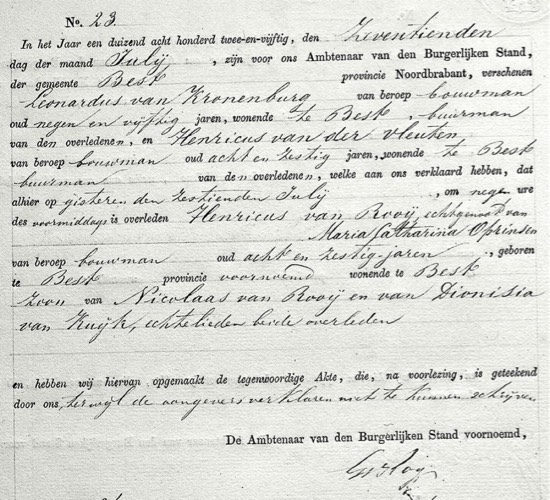 No. 23.
In het Jaar een duizend acht honderd twee-en-vijftig, den Zeventienden
dag der maand Julij , zijn voor ons Ambtenaar van den Burgerlijken Stand,
der gemeente Best provincie Noordbrabant, verschenen
Leonardus van Kronenburg van beroep bouwman
oud negen en vijftig jaren, wonende te Best, buurman
van den overledenen, en Henricus van der Vleuten
van beroep bouwman oud acht en zestig jaren, wonende te Best
buurman van den overledenen, welke aan ons verklaard hebben, dat
alhier op gisteren den zestienden Julij , om negen ure
des voormiddags is overleden Henricus van Rooij, echtgenoot van
Maria Catharina Oprinsen
van beroep bouwman oud acht en zestig jaren , geboren
te Best provincie voornoemd wonende te Best
zoon van Nicolaas van Rooij en van Dionisia
van Kuijk, echtelieden beide overleden
en hebben wij hiervan opgemaakt de tegenwoordige Akte, die, na voorlezing, is geteekend
door ons, terwijl de aangevers verklaren niet te kunnen schrijven.
De Ambtenaar van den Burgerlijken Stand voornoemd,